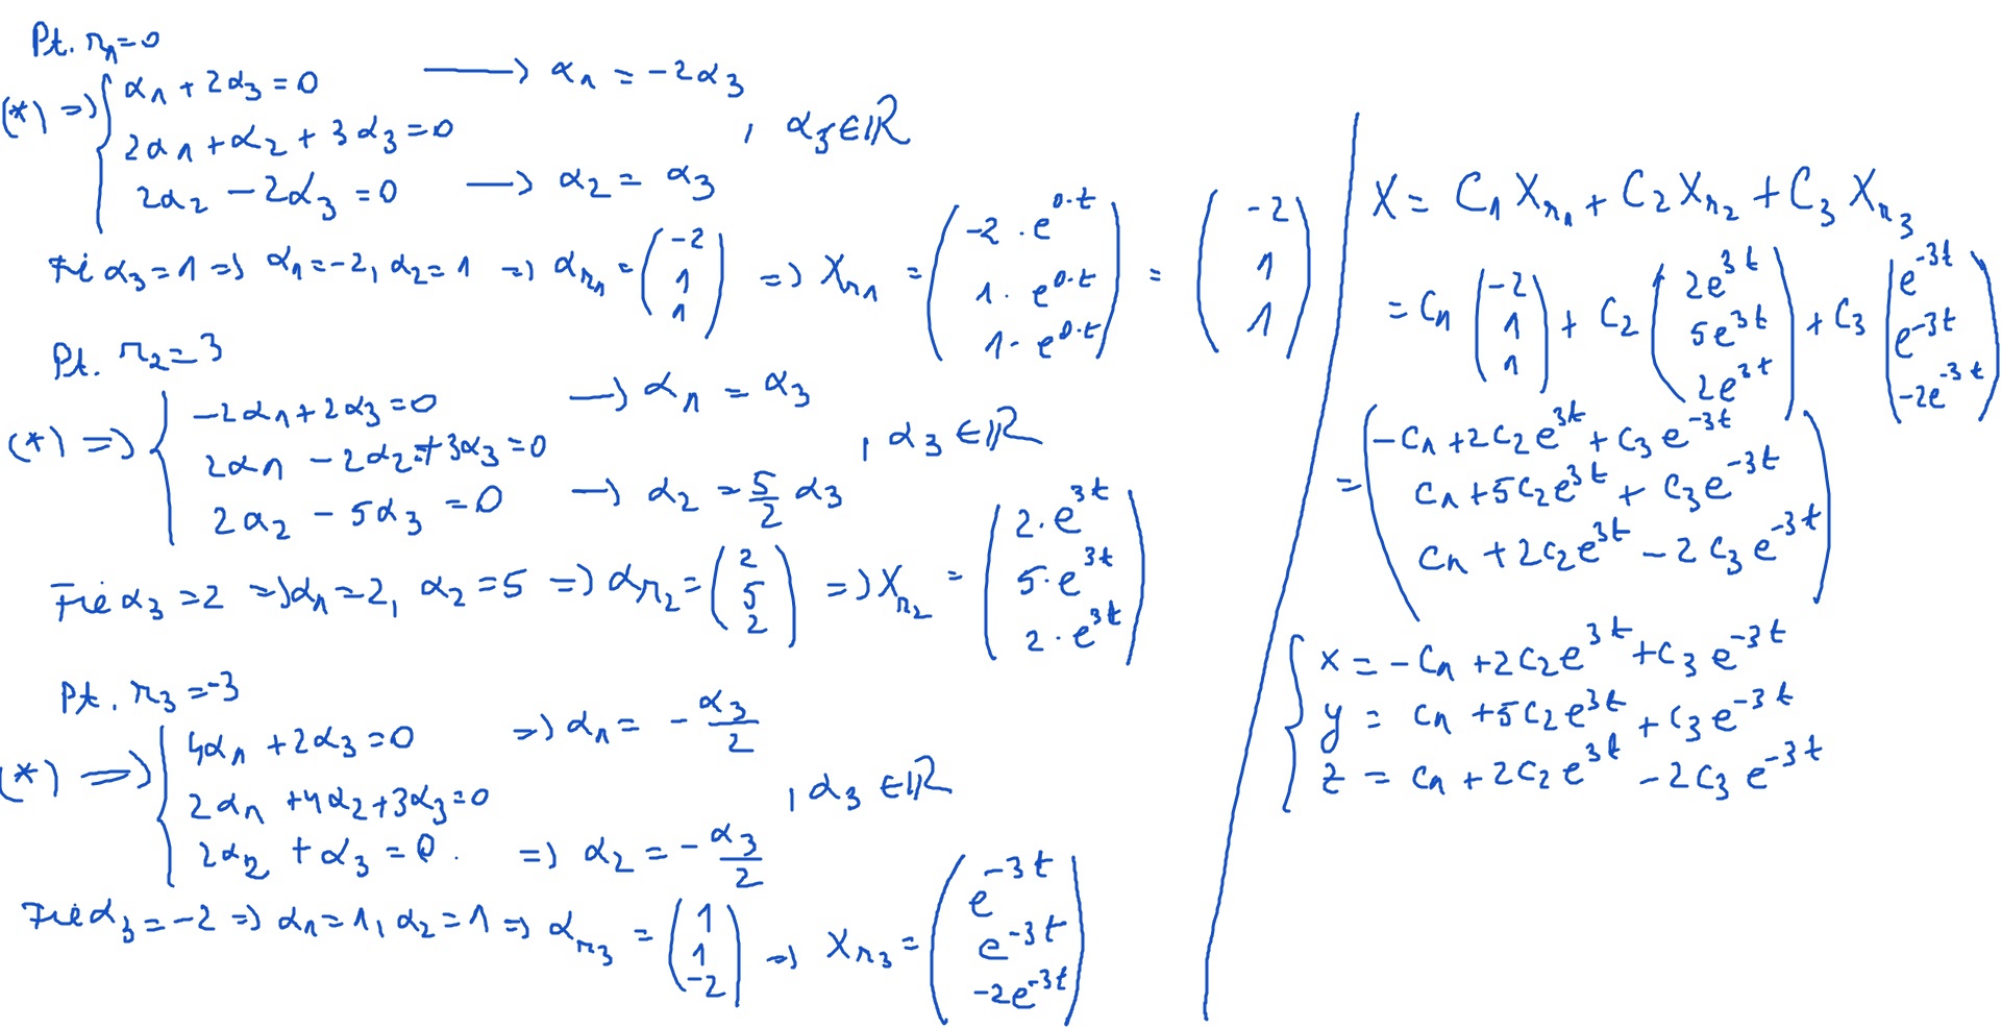 Pt. r₁=0
(*) => { α₁ + 2α₃ = 0 → α₁ = -2α₃
2α₁ + α₂ + 3α₃ = 0 , α₃ ∈ ℝ
2α₂ - 2α₃ = 0 → α₂ = α₃
Fie α₃ = 1 => α₁ = -2, α₂ = 1 => α_r₁ = (-2 1 1) => X_r₁ = (-2·e^{0·t} 1·e^{0·t} 1·e^{0·t}) = (-2 1 1)
Pt. r₂=3
(*) => { -2α₁ + 2α₃ = 0 → α₁ = α₃
2α₁ - 2α₂ + 3α₃ = 0 , α₃ ∈ ℝ
2α₂ - 5α₃ = 0 → α₂ = 5/2 α₃
Fie α₃ = 2 => α₁ = 2, α₂ = 5 => α_r₂ = (2 5 2) => X_r₂ = (2·e^{3t} 5·e^{3t} 2·e^{3t})
Pt. r₃ = -3
(*) => { 4α₁ + 2α₃ = 0 => α₁ = -α₃/2
2α₁ + 4α₂ + 3α₃ = 0 , α₃ ∈ ℝ
2α₂ + α₃ = 0. => α₂ = -α₃/2
Fie α₃ = -2 => α₁ = 1, α₂ = 1 => α_r₃ = (1 1 -2) => X_r₃ = (e^{-3t} e^{-3t} -2e^{-3t})
X = C₁ X_r₁ + C₂ X_r₂ + C₃ X_r₃
= C₁ (-2 1 1) + C₂ (2e^{3t} 5e^{3t} 2e^{3t}) + C₃ (e^{-3t} e^{-3t} -2e^{-3t})
= (-C₁ + 2C₂e^{3t} + C₃e^{-3t}
C₁ + 5C₂e^{3t} + C₃e^{-3t}
C₁ + 2C₂e^{3t} - 2C₃e^{-3t})
{ x = -C₁ + 2C₂e^{3t} + C₃e^{-3t}
y = C₁ + 5C₂e^{3t} + C₃e^{-3t}
z = C₁ + 2C₂e^{3t} - 2C₃e^{-3t}